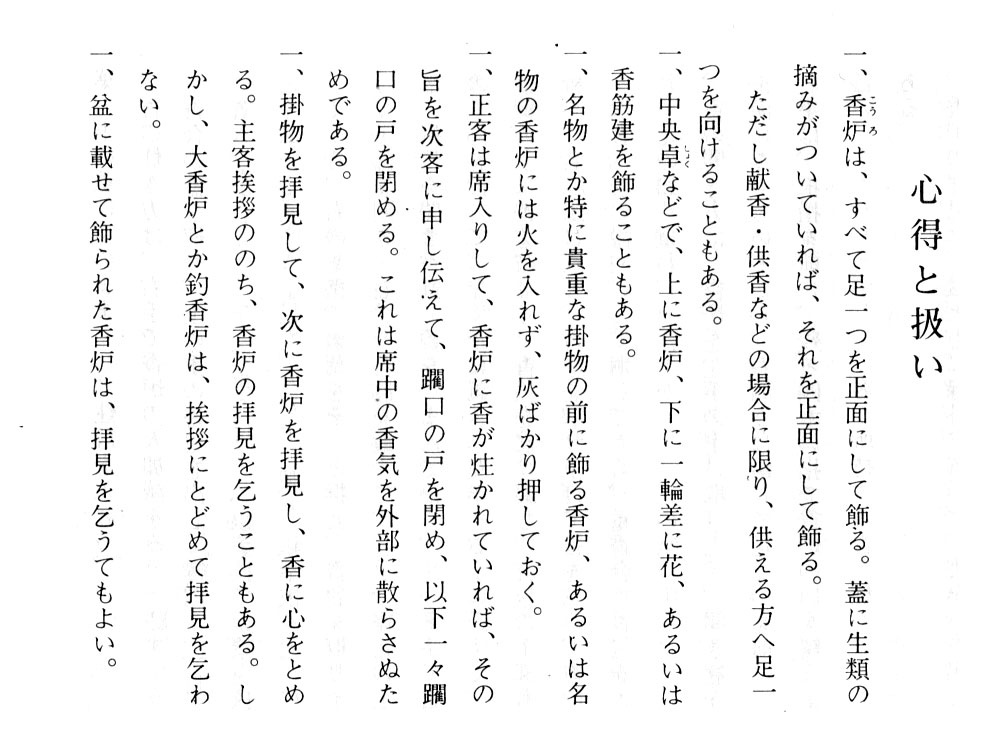 心得と扱い
一、香炉は、すべて足一つを正面にして飾る。蓋に生類の
こうろ
摘みがついていれば、それを正面にして飾る。
ただし献香・供香などの場合に限り、供える方へ足一
つを向けることもある。
一、中央卓などで、上に香炉、下に一輪差に花、あるいは
しょく
香筋建を飾ることもある。
一、名物とか特に貴重な掛物の前に飾る香炉、あるいは名
物の香炉には火を入れず、灰ばかり押しておく。
一、正客は席入りして、香炉に香が炷かれていれば、その
旨を次客に申し伝えて、躙口の戸を閉め、以下一々躙
口の戸を閉める。これは席中の香気を外部に散らさぬた
めである。
一、掛物を拝見して、次に香炉を拝見し、香に心をとめ
る。主客挨拶ののち、香炉の拝見を乞うこともある。し
かし、大香炉とか釣香炉は、挨拶にとどめて拝見を乞わ
ない。
一、盆に載せて飾られた香炉は、拝見を乞うてもよい。